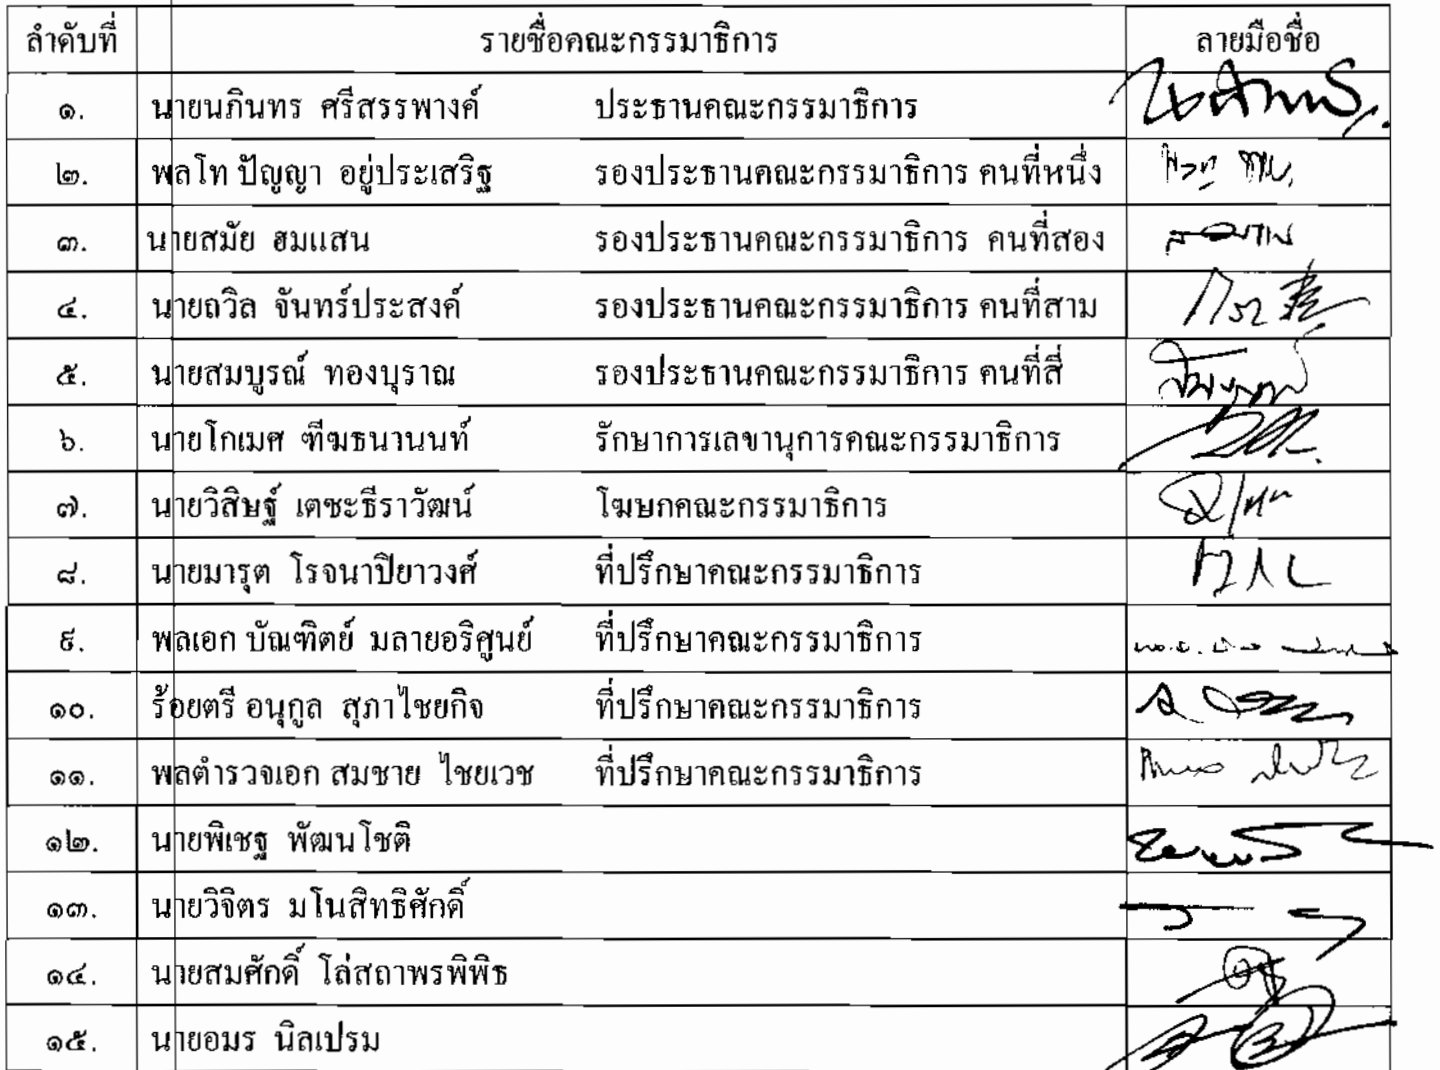 ลำดับที่ รายชื่อคณะกรรมาธิการ ลายมือชื่อ
๑. นายนภินทร ศรีสรรพางค์ ประธานคณะกรรมาธิการ
๒. พลโท ปัญญา อยู่ประเสริฐ รองประธานคณะกรรมาธิการ คนที่หนึ่ง
๓. นายสมัย ฮมแสน รองประธานคณะกรรมาธิการ คนที่สอง
๔. นายถวิล จันทร์ประสงค์ รองประธานคณะกรรมาธิการ คนที่สาม
๕. นายสมบูรณ์ ทองบุราณ รองประธานคณะกรรมาธิการ คนที่สี่
๖. นายโกเมศ ฑีฆธนานนท์ รักษาการเลขานุการคณะกรรมาธิการ
๗. นายวิสิษฐ์ เตชะธีราวัฒน์ โฆษกคณะกรรมาธิการ
๘. นายมารุต โรจนาปิยาวงศ์ ที่ปรึกษาคณะกรรมาธิการ
๙. พลเอก บัณฑิตย์ มลายอริศูนย์ ที่ปรึกษาคณะกรรมาธิการ
๑๐. ร้อยตรี อนุกูล สุภาไชยกิจ ที่ปรึกษาคณะกรรมาธิการ
๑๑. พลตำรวจเอก สมชาย ไชยเวช ที่ปรึกษาคณะกรรมาธิการ
๑๒. นายพิเชฐ พัฒนโชติ
๑๓. นายวิจิตร มโนสิทธิศักดิ์
๑๔. นายสมศักดิ์ โล่สถาพรพิพิธ
๑๕. นายอมร นิลเปรม